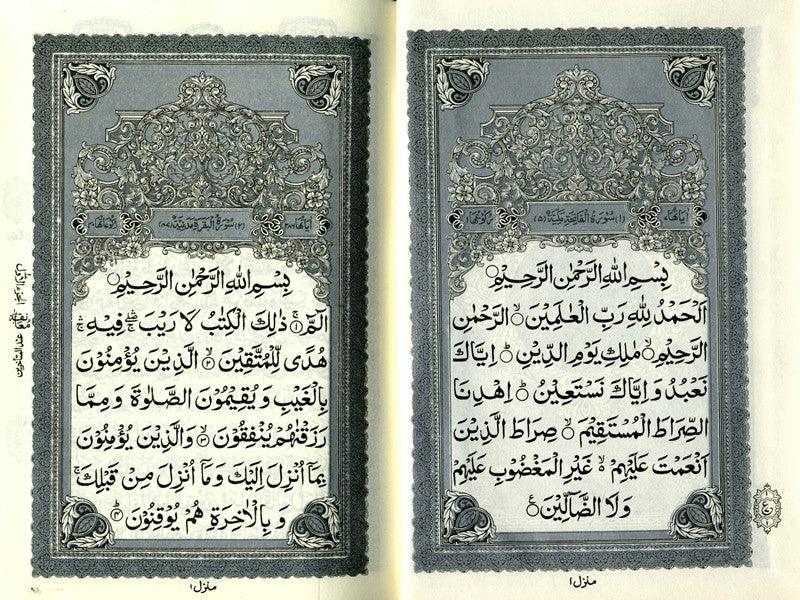 (١) سُوْرَةُ الْفَاتِحَةِ مَكِّيَّةٌ (٥)
بِسْمِ اللهِ الرَّحْمٰنِ الرَّحِيْمِ
اَلْحَمْدُ لِلّٰهِ رَبِّ الْعٰلَمِيْنَ ۙ الرَّحْمٰنِ
الرَّحِيْمِ ۙ مٰلِكِ يَوْمِ الدِّيْنِ ؕ اِيَّاكَ
نَعْبُدُ وَ اِيَّاكَ نَسْتَعِيْنُ ؕ اِهْدِنَا
الصِّرَاطَ الْمُسْتَقِيْمَ ۙ صِرَاطَ الَّذِيْنَ
اَنْعَمْتَ عَلَيْهِمْ ۙ غَيْرِ الْمَغْضُوْبِ عَلَيْهِمْ
وَلَا الضَّآلِّيْنَ
منزل ١
(٢) سُوْرَةُ الْبَقَرَةِ مَدَنِيَّةٌ (٨٧)
بِسْمِ اللهِ الرَّحْمٰنِ الرَّحِيْمِ
الٓمّٓ ۚ ١ ذٰلِكَ الْكِتٰبُ لَا رَيْبَ ۛ فِيْهِ ۛ
هُدًى لِّلْمُتَّقِيْنَ ۙ ٢ الَّذِيْنَ يُؤْمِنُوْنَ
بِالْغَيْبِ وَ يُقِيْمُوْنَ الصَّلٰوةَ وَ مِمَّا
رَزَقْنٰهُمْ يُنْفِقُوْنَ ۙ ٣ وَالَّذِيْنَ يُؤْمِنُوْنَ
بِمَآ اُنْزِلَ اِلَيْكَ وَ مَآ اُنْزِلَ مِنْ قَبْلِكَ ۚ
وَ بِالْاٰخِرَةِ هُمْ يُوْقِنُوْنَ ؕ ٤
منزل ١